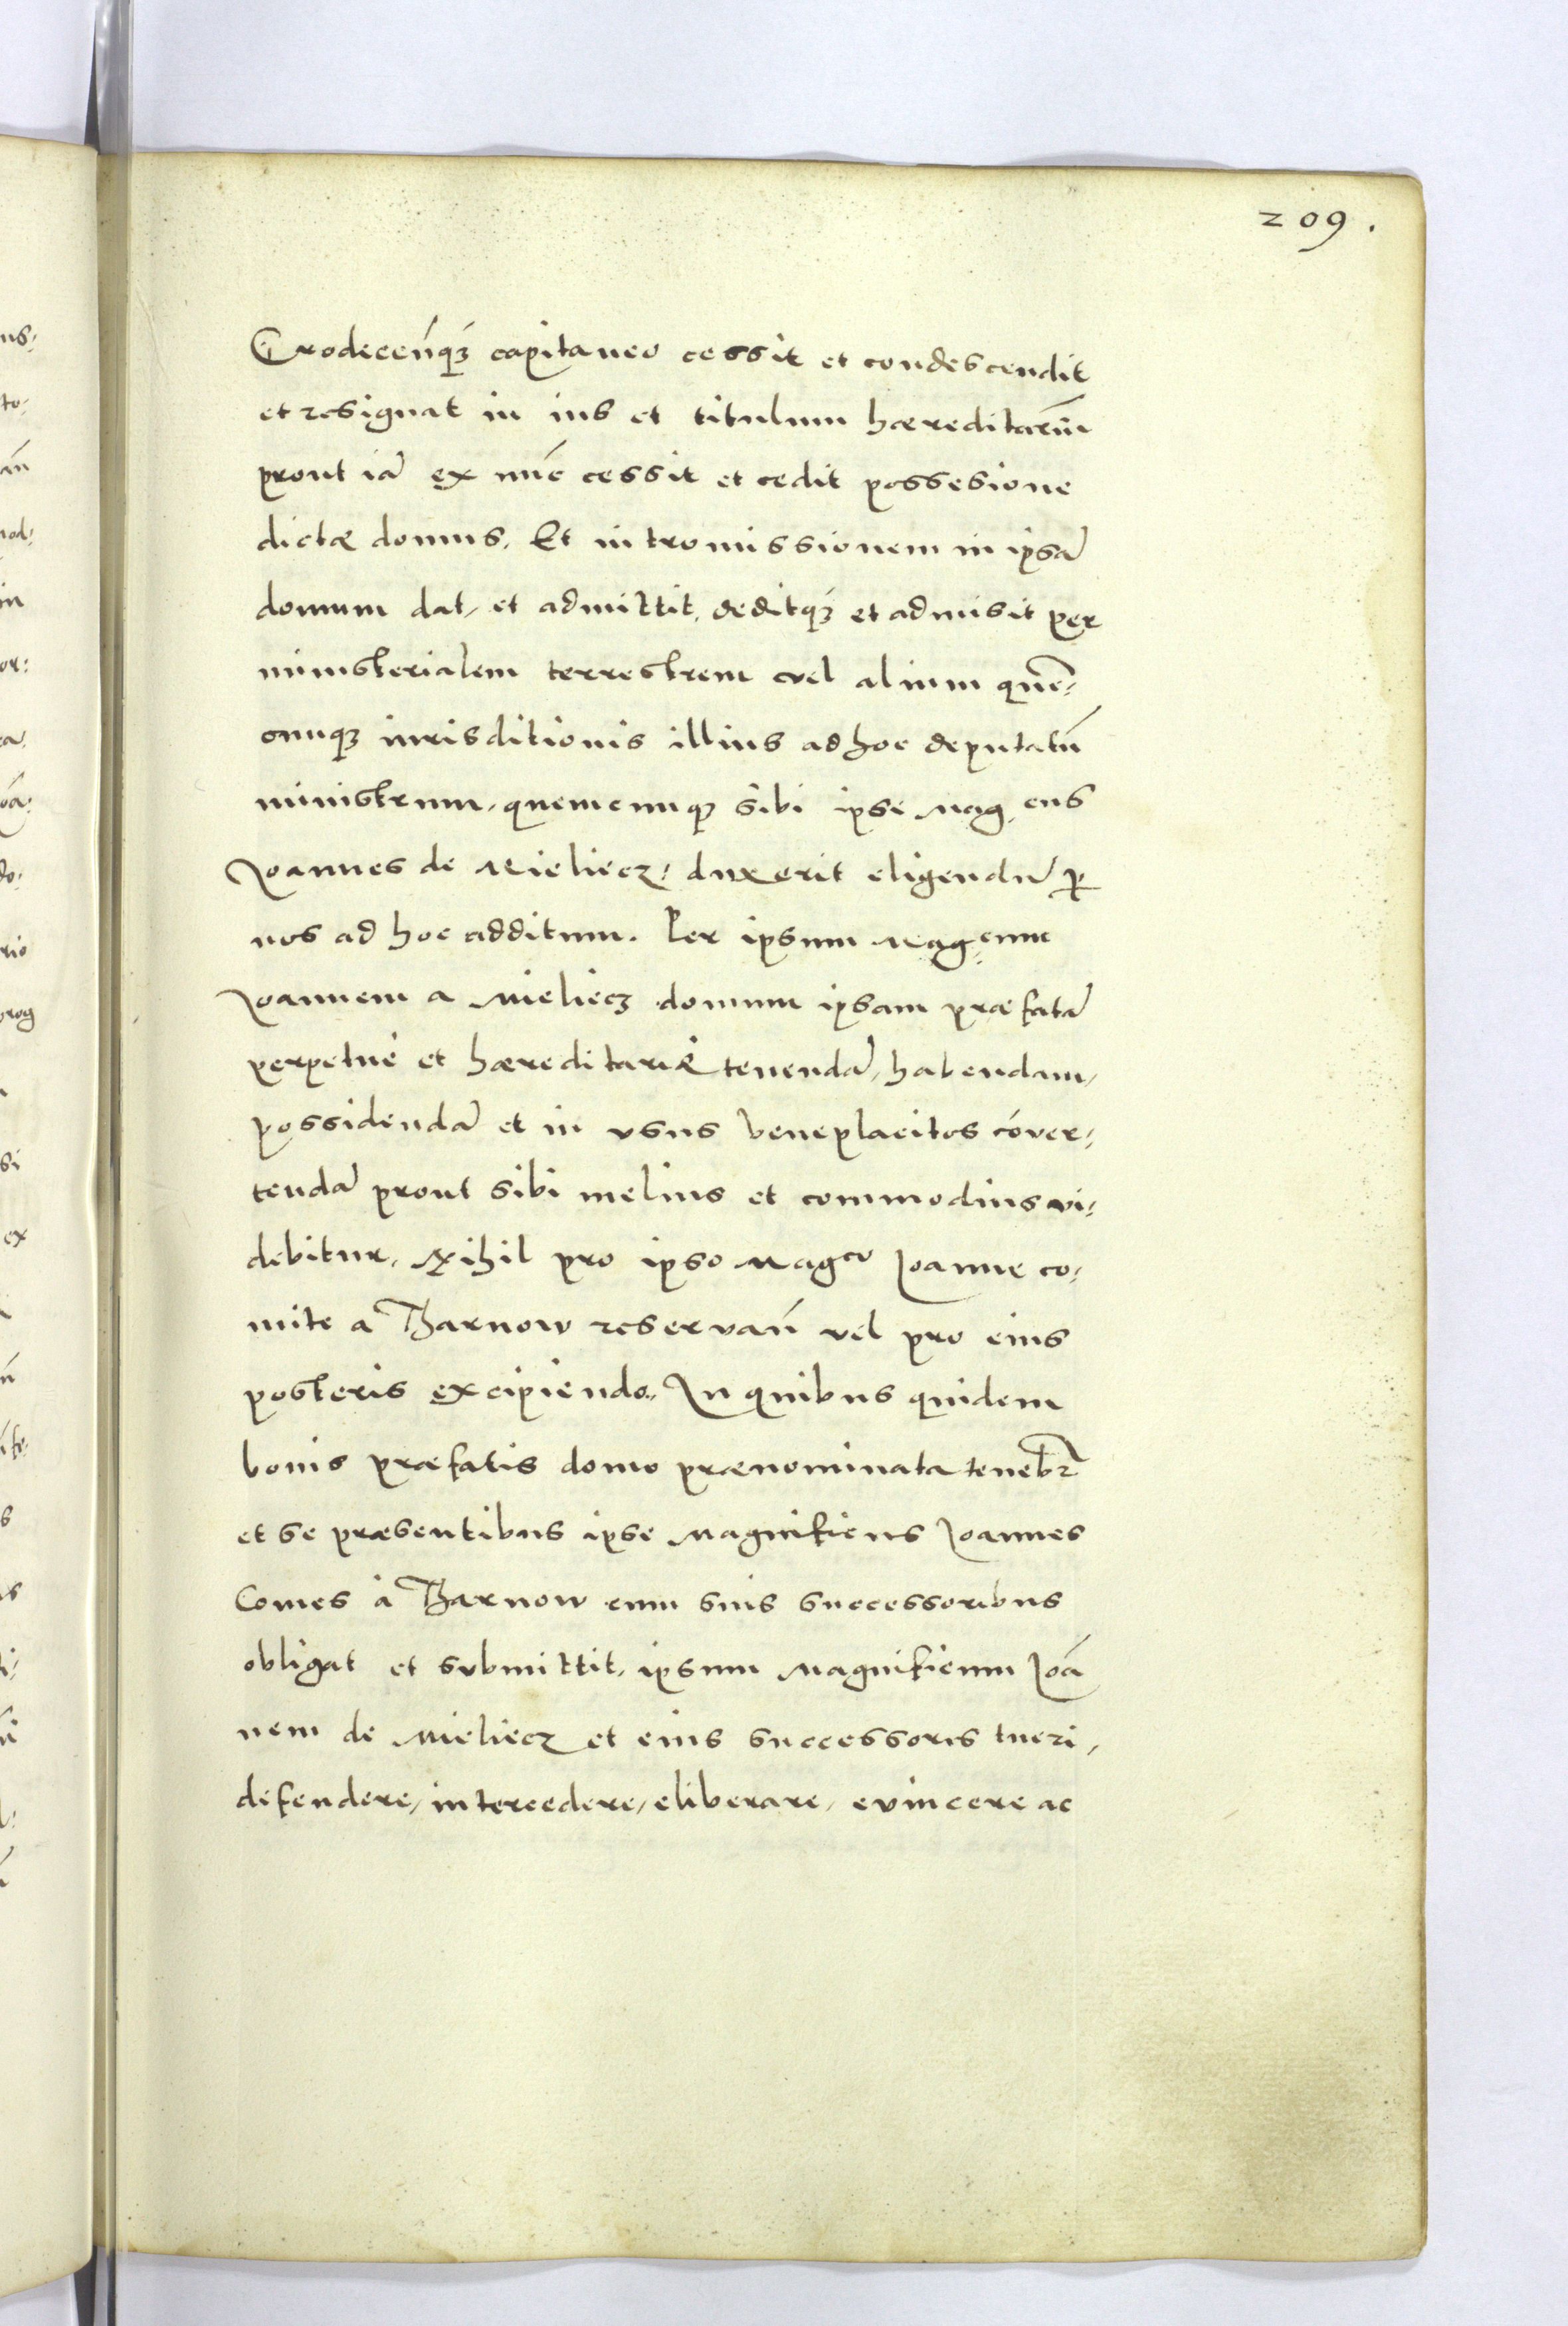 209.
Grodecen̄q́ʒ capitaneo cessit et condescendit
et resignat in ius et titulum hæreditariū
prout iā ex nūc cessit et cedit possesione
dictæ domus. Et intromissionem in ipsā
domum dat, et admittit, deditq́ʒ et admisit per
ministerialem terrestrem vel alium quē-
cunqʒ iurisditionis illius ad hoc deputatū
ministrum, quemcunqʒ sibi ipse Mag.cus
Joannes de Mieliecz, duxerit eligendū ꝑ
nos ad hoc additum. Per ipsum Mag.cum
Joannem a Mieliecz domum ipsam præfatā
perpetuè et hæreditariè tenendā, habendam,
possidendā et in vsus beneplacitos cōver-
tendā prout sibi melius et commodius vi-
debitur, Nihil pro ipso Mag.co Joanne co-
mite a Tharnow reservan̄ vel pro eius
posteris excipiendo. In quibus quidem
bonis præfatis domo prænominata tenebr̄
et se præsentibus ipse Magnificus Joannes
Comes à Tharnow cum suis successoribus
obligat et submittit, ipsum Magnificum Joā
nem de Mieliecz et eius successores tueri,
defendere, intercedere, eliberare, evincere ac
ns-
to-
an̄
mod-
in
or-
ca-
oā-
do-
rio
prog
si
ex